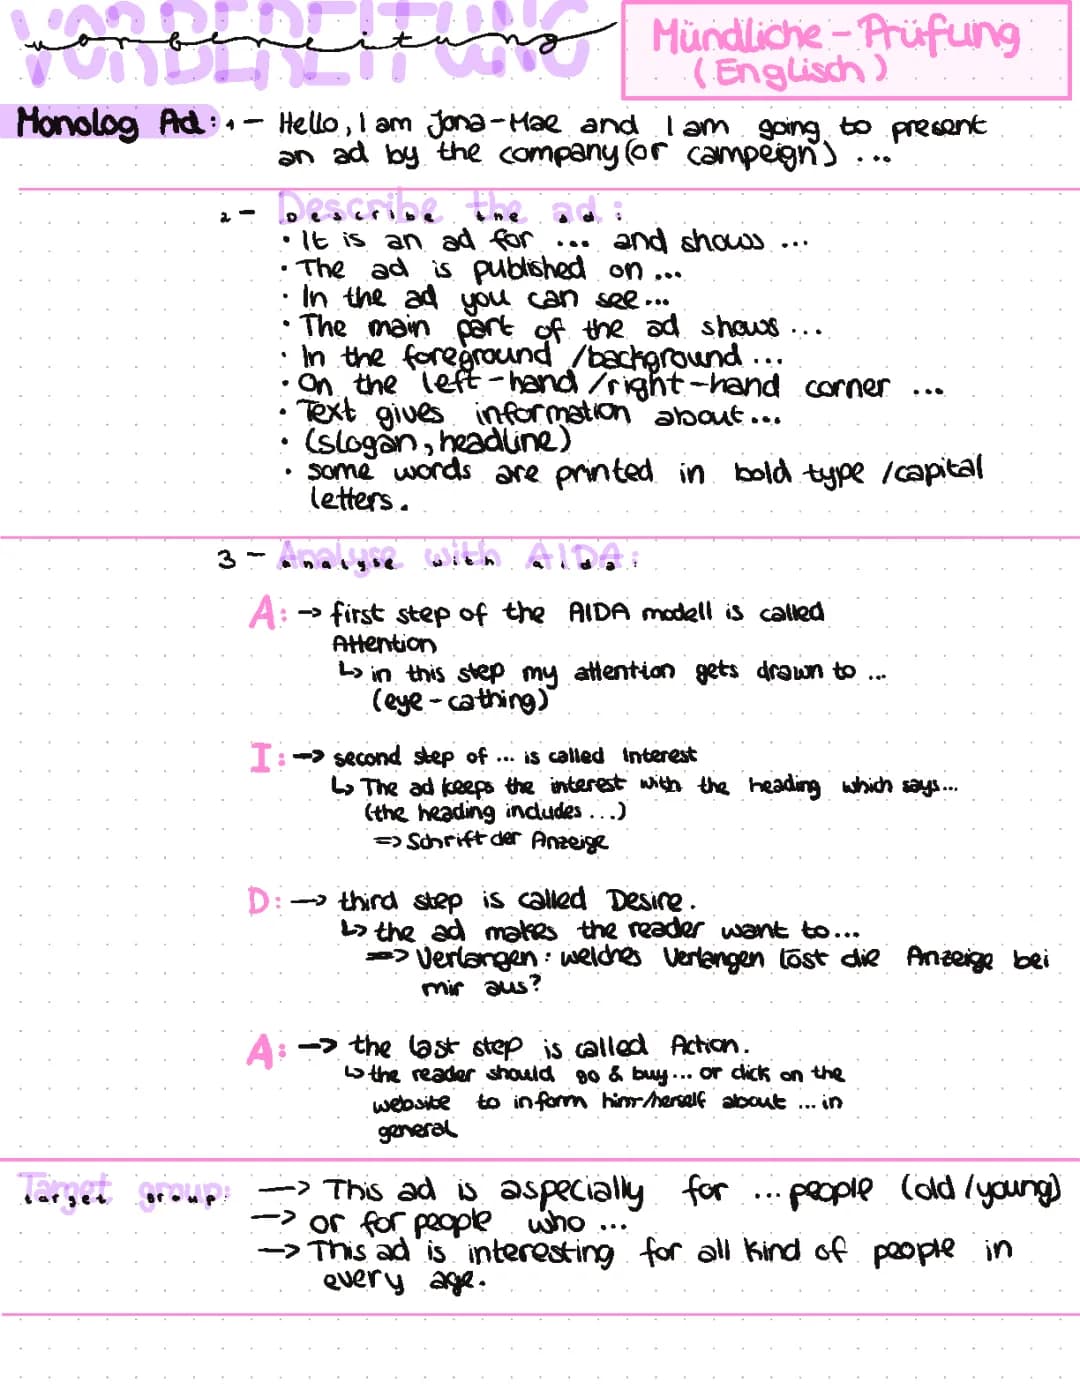 VORBEREITUNG
vorbereitung
Mündliche - Prüfung
(Englisch)
Monolog Ad: 1 - Hello, I am Jona-Mae and I am going to present
an ad by the company (or campeign) ...
2 - Describe the ad:
describe the ad:
• It is an ad for ... and shows ...
• The ad is published on ...
• In the ad you can see...
• The main part of the ad shows ...
• In the foreground /background ...
• On the left-hand /right-hand corner ...
• Text gives information about...
• (slogan, headline)
• some words are printed in bold type /capital
letters.
3 - Analyse with AIDA:
analyse with aida:
A: → first step of the AIDA modell is called
Attention
↳ in this step my attention gets drawn to ...
(eye - cathing)
I: → second step of ... is called Interest
↳ The ad keeps the interest with the heading which says...
(the heading includes ...)
=> Schrift der Anzeige
D: → third step is called Desire.
↳ the ad makes the reader want to...
=> Verlangen: welches Verlangen löst die Anzeige bei
mir aus?
A: → the last step is called Action.
↳ the reader should go & buy ... or click on the
website to inform him-/herself about ... in
general
Target group:
target group:
→ This ad is aspecially for ... people (old /young)
→ or for people who ...
→ This ad is interesting for all kind of people in
every age.